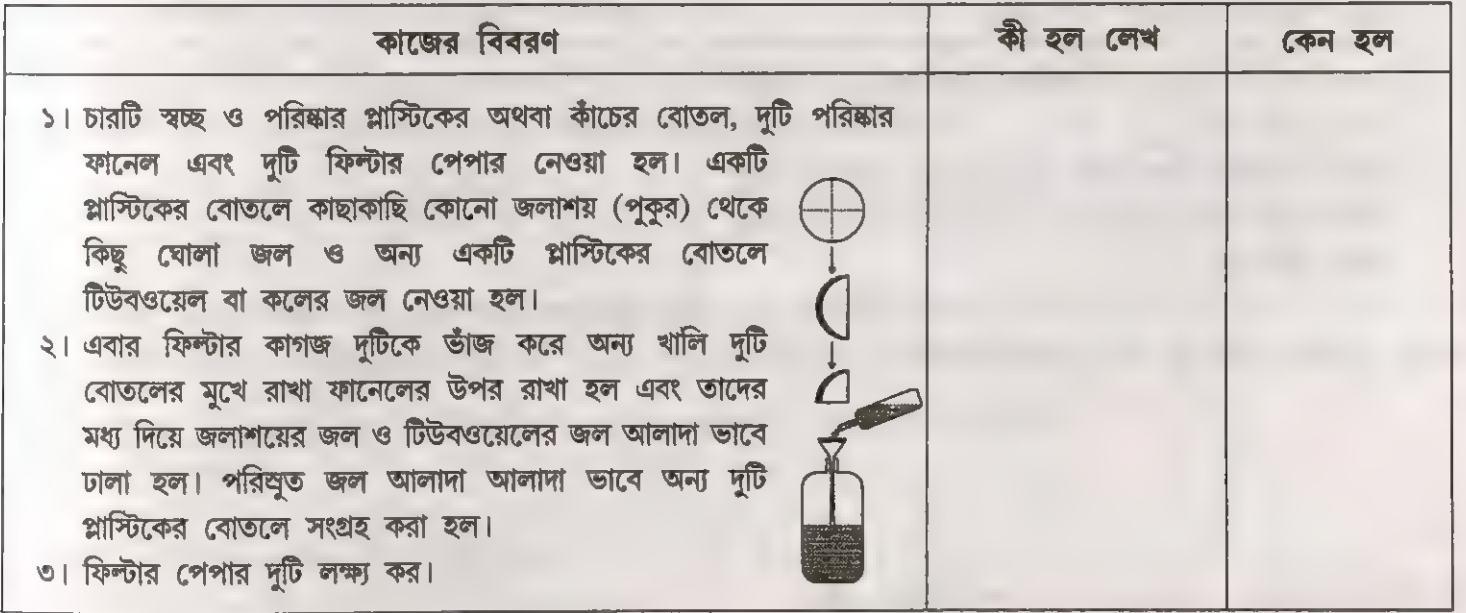 কাজের বিবরণ
কী হল লেখ
কেন হল
১। চারটি স্বচ্ছ ও পরিষ্কার প্লাস্টিকের অথবা কাঁচের বোতল, দুটি পরিষ্কার
ফানেল এবং দুটি ফিল্টার পেপার নেওয়া হল। একটি
প্লাস্টিকের বোতলে কাছাকাছি কোনো জলাশয় (পুকুর) থেকে
কিছু ঘোলা জল ও অন্য একটি প্লাস্টিকের বোতলে
টিউবওয়েল বা কলের জল নেওয়া হল।
২। এবার ফিল্টার কাগজ দুটিকে ভাঁজ করে অন্য খালি দুটি
বোতলের মুখে রাখা ফানেলের উপর রাখা হল এবং তাদের
মধ্য দিয়ে জলাশয়ের জল ও টিউবওয়েলের জল আলাদা ভাবে
ঢালা হল। পরিস্রুত জল আলাদা আলাদা ভাবে অন্য দুটি
প্লাস্টিকের বোতলে সংগ্রহ করা হল।
৩। ফিল্টার পেপার দুটি লক্ষ্য কর।